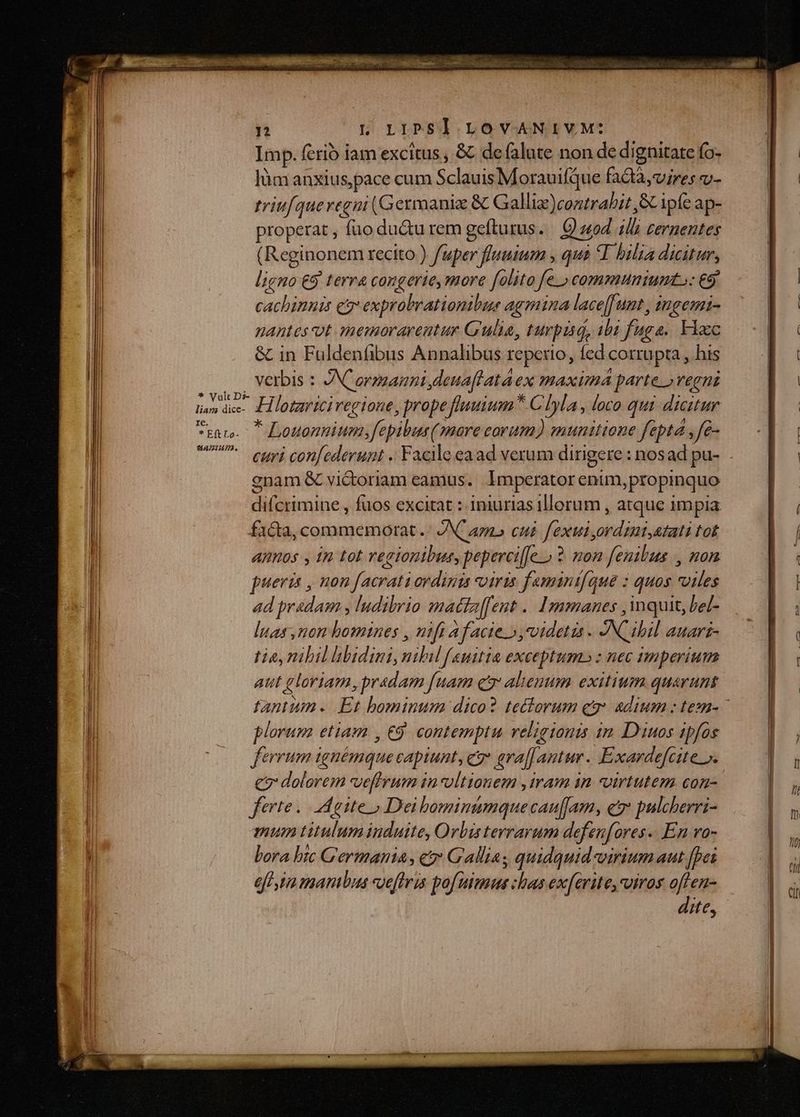 12 I. LIPSI LOVANIVM:
Imp. seriò iam excitus, & de salute non de dignitate so-
lùm anxius, pace cum Sclauis Morauisque factâ, vires v-
triusque regni (Germaniæ & Galliæ) contrahit, & ipse ap-
properat, suo ductu rem gesturus. Quod illi cernentes
(Reginonem recito) super fluuium, qui Thilia dicitur,
ligno & terræ congerie, more solito se communiunt: &
cachinnis & exprobrationibus agmina lacessunt, ingemi-
nantes vt memorarentur Guliæ, turpisq, ibi fugæ. Hæc
& in Fuldensibus Annalibus reperio, sed corrupta, his
verbis: Normanni, deuastatâ ex maximâ parte regni
* Vult Di-
liam dice-
re.
Hlotarici regione, prope fluuium * Clyla, loco qui dicitur
* Est Lo-
uanium.
* Louonnium, sepibus (more eorum) munitione septâ, se-
curi consederunt. Facile ea ad verum dirigere: nos ad pu-
gnam & victoriam eamus. Imperator enim, propinquo
discrimine, suos excitat: iniurias illorum, atque impia
facta, commemorat. Nam cui sexui, ordini, ætati tot
annos, in tot regionibus, pepercisse? non senibus, non
pueris, non sacrati ordinis viris feminisque: quos viles
ad prædam, ludibrio mactassent. Immanes, inquit, bel-
luas, non homines, nisi à facie, videtis. Nihil auari-
tiæ, nihil libidini, nihil sæuitiæ exceptum: nec imperium
aut gloriam, prædam suam & alienum exitium quærunt
tantum. Et hominum dico? tectorum & ædium: tem-
plorum etiam, & contemptu religionis in Diuos ipsos
ferrum ignémque capiunt, & grassantur. Exardescite,
& dolorem vestrum in vltionem, iram in virtutem con-
ferte. Agite, Dei hominúmque caussam, & pulcherri-
mum titulum induite, Orbis terrarum defensores. En ro-
bora hîc Germaniæ, & Galliæ; quidquid virium aut spei
est, in manibus vestris posuimus: has exserite, viros osten-
dite,